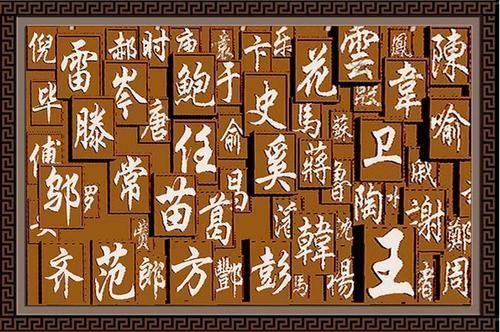 倪 雷 岑 郝 时 鲍 于 卞 乐 花 雲 鳳 韋 陳
毕 滕 唐 任 俞 史 馬 蘇 殷 喻
傅 邬 罗 常 苗 葛 昌 奚 蔣 魯 卫 戚
齐 范 郎 方 酆 彭 韓 馬 楊 陶 水 王 謝 鄭 周